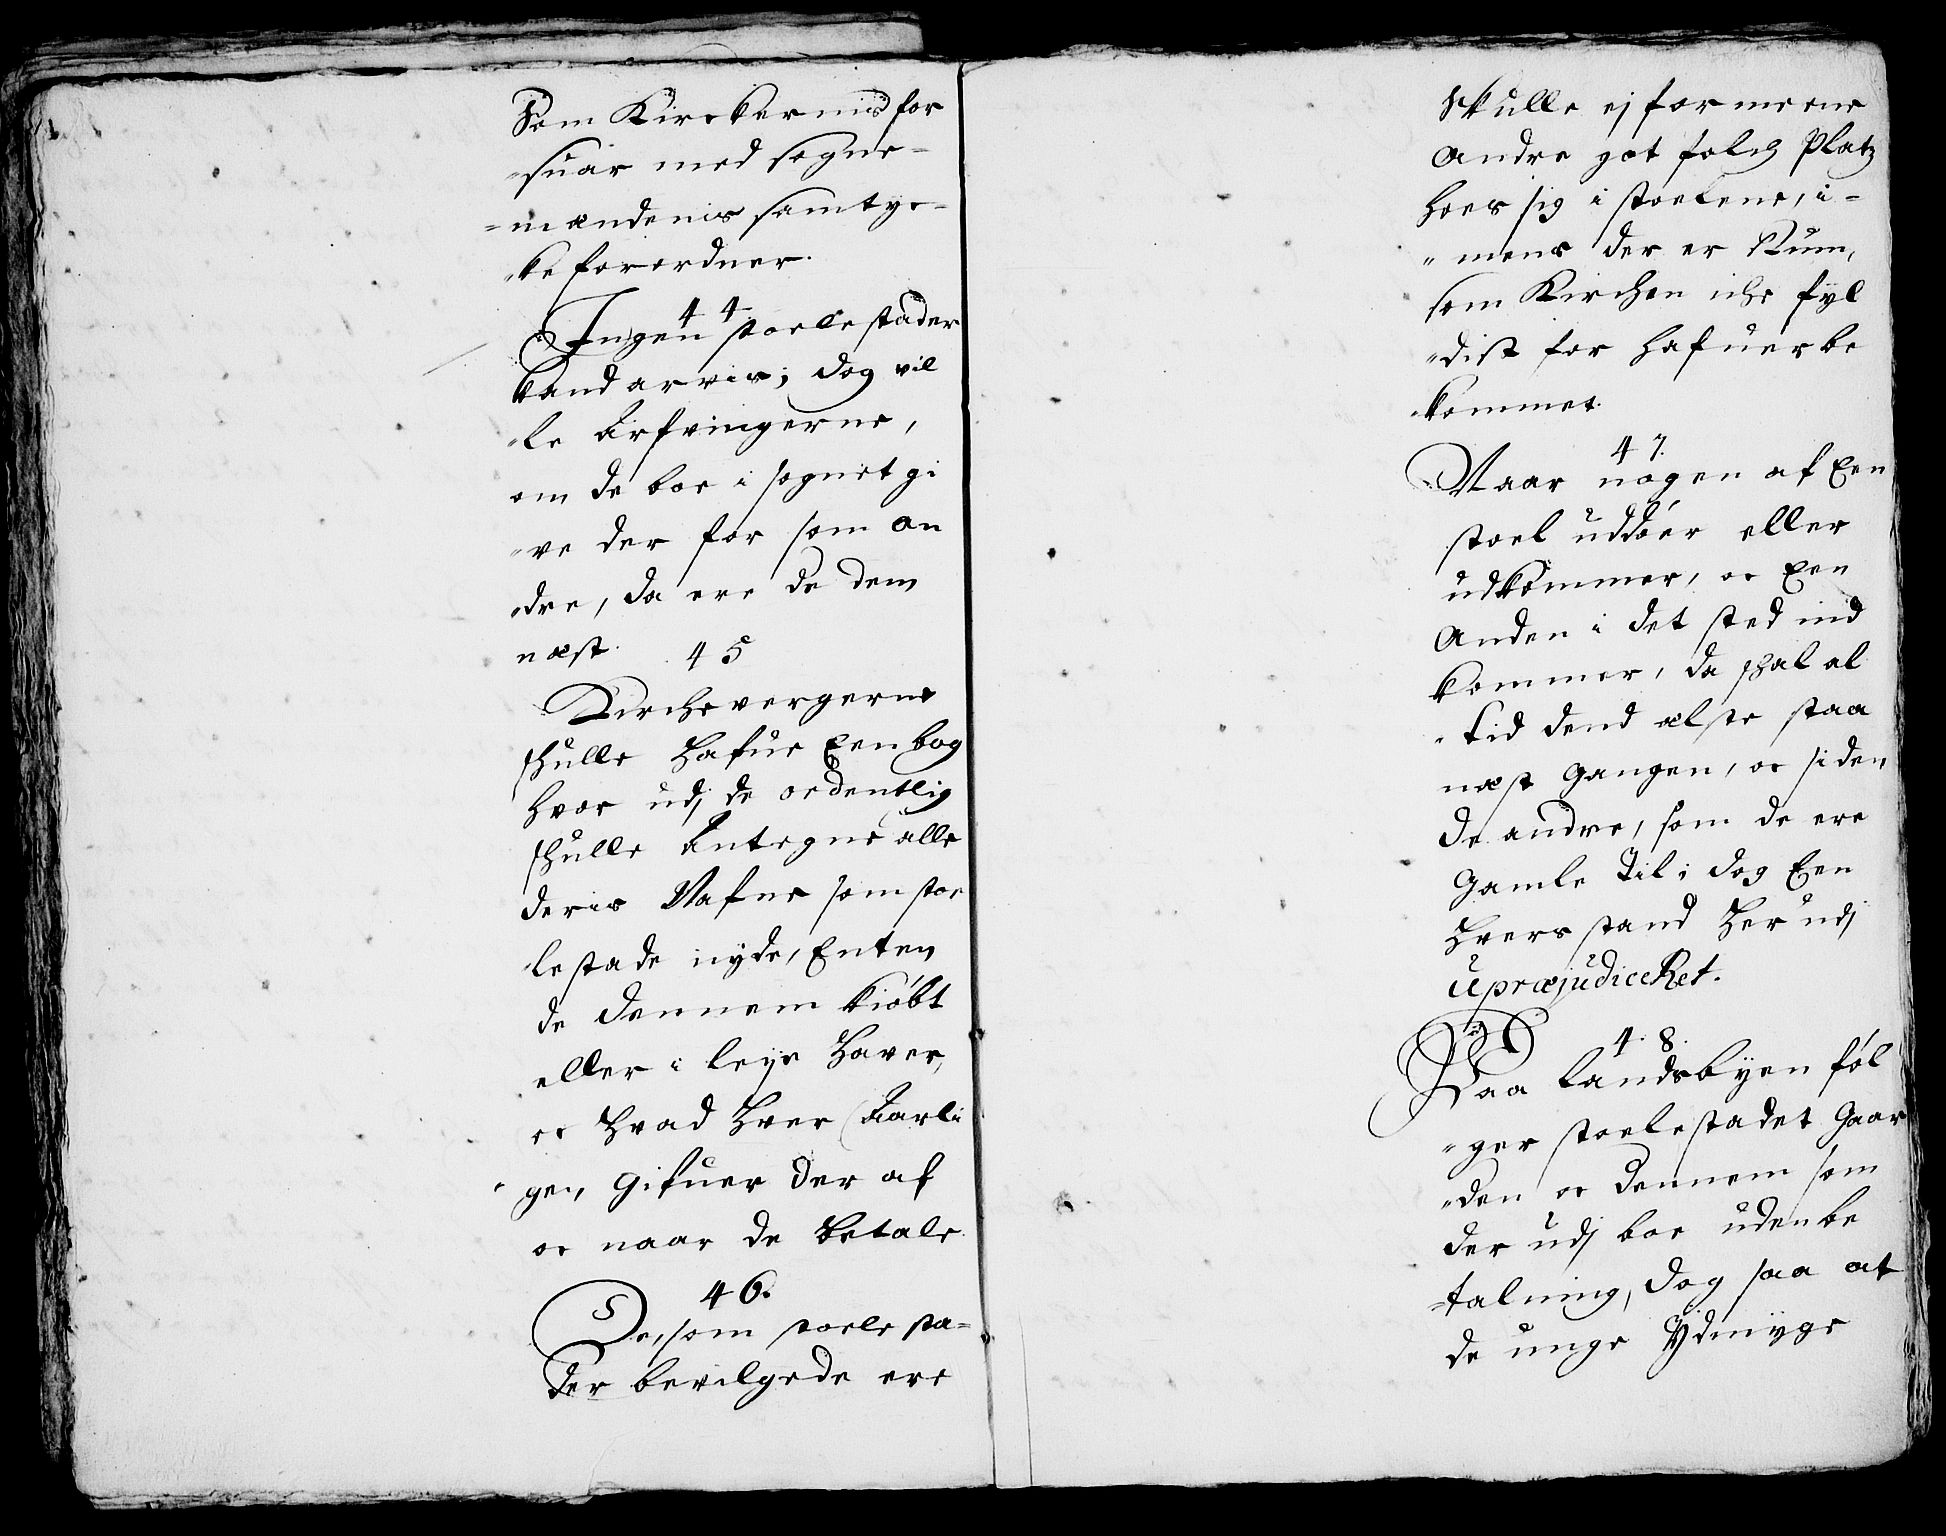 Som Kirckernis for
"suar med sogne=
=mændenis samtyc=
"ke forordner.
44
Ingen stoelestader
kand arvis; dog vil
"le Arfvingerne,
om de boe i sognet gi
"ve der for som an
"dre, da ere de dem
næst.
45
Kirchevergerne
skulle hafue Een bog
hvor udj de ordentlig
skulle Antegne alle
deris Nafne som stoe
"lestade nyde, Enten
de dennem kiöbt
eller i leye haver,
oc hvad hver Aarli
gen gifuer der af
oc naar de betale.
46.
De, som stoele sta=
der bevilgede ere
Skulle ej formeene
Andre got folch Platz
hoes sig i stoelene, i=
"mens der er Rum,
som Kirchen iche fyl
"dist for hafuer be
"kommet.
47.
Naar nogen af Een
stoel uddöer eller
udkommer, oc Een
Anden i det sted ind
kommer, da skal al
"tid dend ælste staa
næst Gangen, oc siden
de andre, som de ere
Gamle til; dog Een
hvers stand her udj
upræjudiceret.
48.
Paa Landsbyen föl
"ger stoelestadet Gaar
"den oc dennem som
der udj boe uden be
=talning, dog saa at
de unge Ydmyge